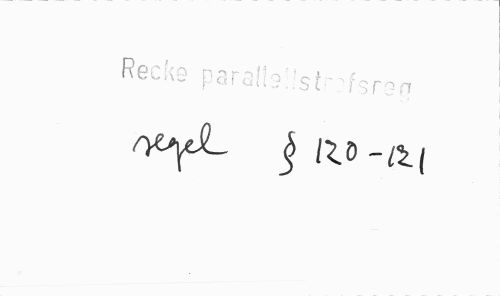 Recke parallellstrofsreg
regel § 120-121